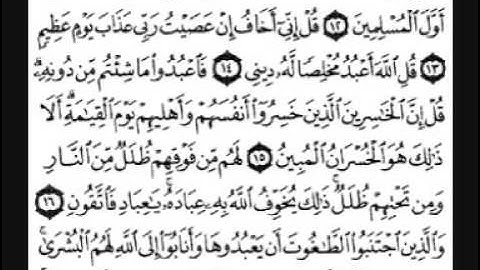 أَوَّلَ ٱلْمُسْلِمِينَ ١٢ قُلْ إِنِّىٓ أَخَافُ إِنْ عَصَيْتُ رَبِّى عَذَابَ يَوْمٍ عَظِيمٍ
١٣ قُلِ ٱللَّهَ أَعْبُدُ مُخْلِصًا لَّهُۥ دِينِى ١٤ فَٱعْبُدُوا۟ مَا شِئْتُم مِّن دُونِهِۦ ۗ
قُلْ إِنَّ ٱلْخَـٰسِرِينَ ٱلَّذِينَ خَسِرُوٓا۟ أَنفُسَهُمْ وَأَهْلِيهِمْ يَوْمَ ٱلْقِيَـٰمَةِ ۗ أَلَا
ذَٰلِكَ هُوَ ٱلْخُسْرَانُ ٱلْمُبِينُ ١٥ لَهُم مِّن فَوْقِهِمْ ظُلَلٌ مِّنَ ٱلنَّارِ
وَمِن تَحْتِهِمْ ظُلَلٌ ۚ ذَٰلِكَ يُخَوِّفُ ٱللَّهُ بِهِۦ عِبَادَهُۥ ۚ يَـٰعِبَادِ فَٱتَّقُونِ ١٦
وَٱلَّذِينَ ٱجْتَنَبُوا۟ ٱلطَّـٰغُوتَ أَن يَعْبُدُوهَا وَأَنَابُوٓا۟ إِلَى ٱللَّهِ لَهُمُ ٱلْبُشْرَىٰ ۚ